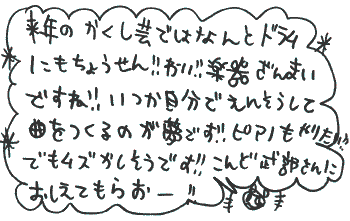 来年のかくし芸ではなんとドライ
にもちょうせん!!わい!!楽器ざんまい
ですね!! いつか自分でえんそうして
曲をつくるのが夢です!! ピアノもやりたい!!
でもムズかしそうです!! こんど武部さんに
おしえてもらおー!!